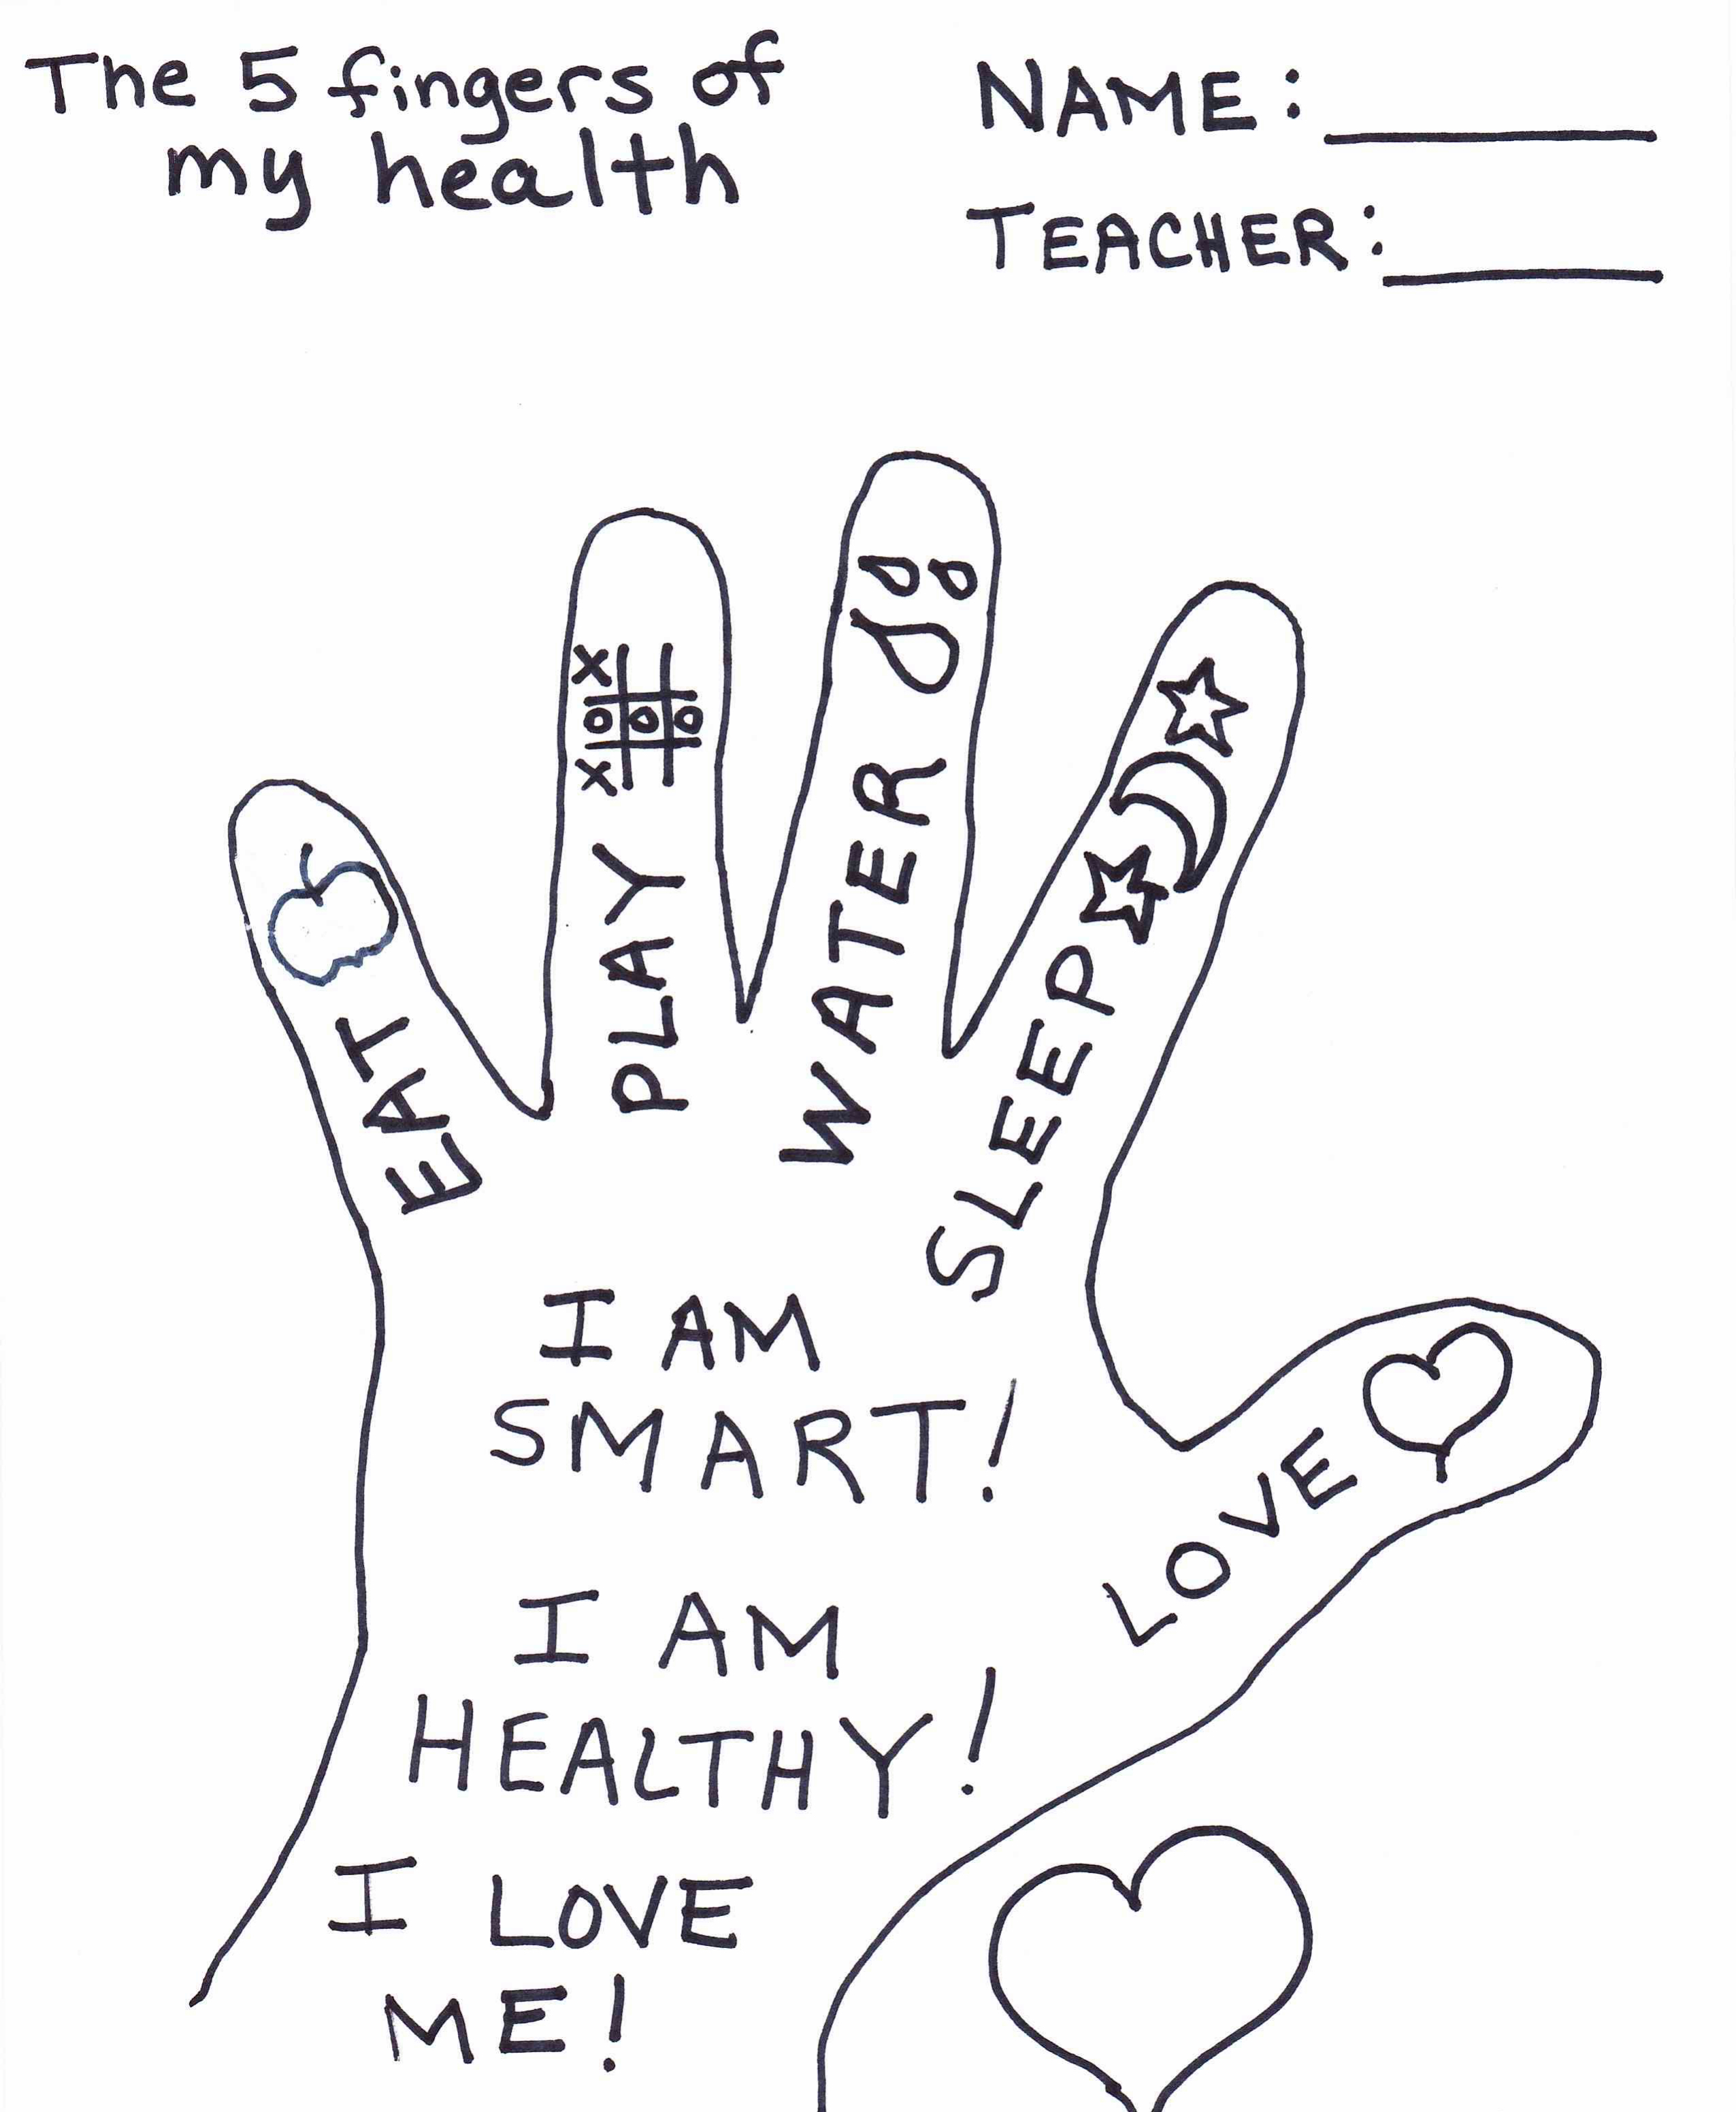 The 5 fingers of
my health
NAME: ________
TEACHER: ______
EAT
PLAY
X
O O O
X
WATER
SLEEP
LOVE
I AM
SMART!
I AM
HEALTHY!
I LOVE
ME!